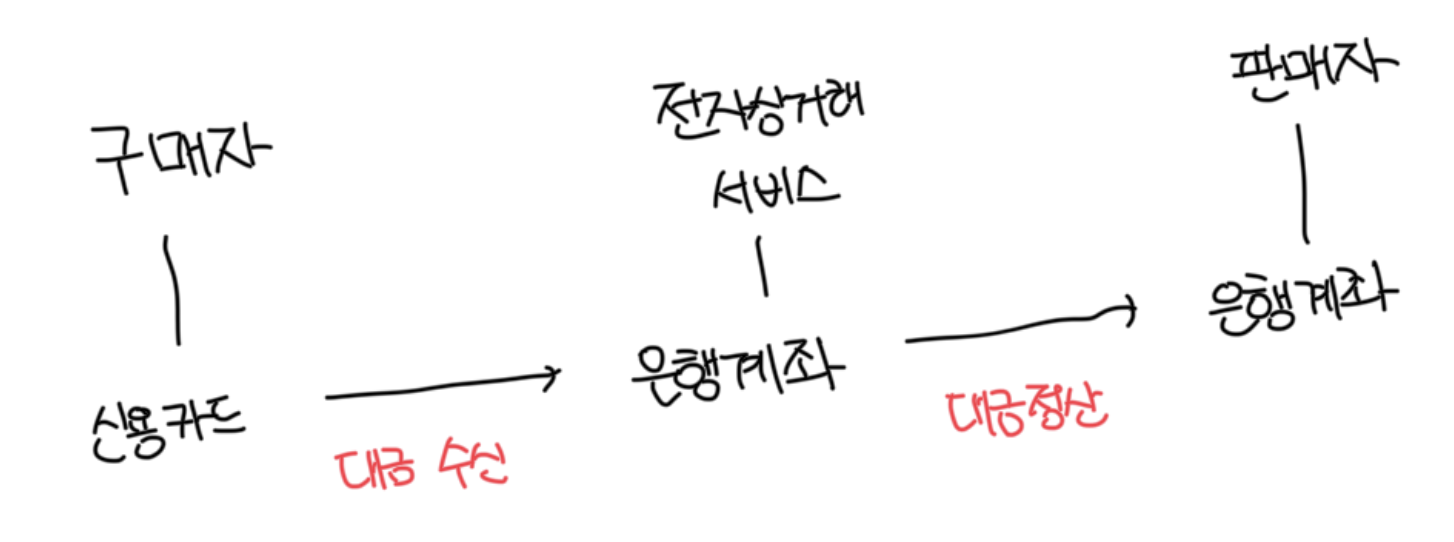 구매자
신용카드
대금 수신
전자상거래
서비스
은행계좌
대금정산
판매자
은행계좌